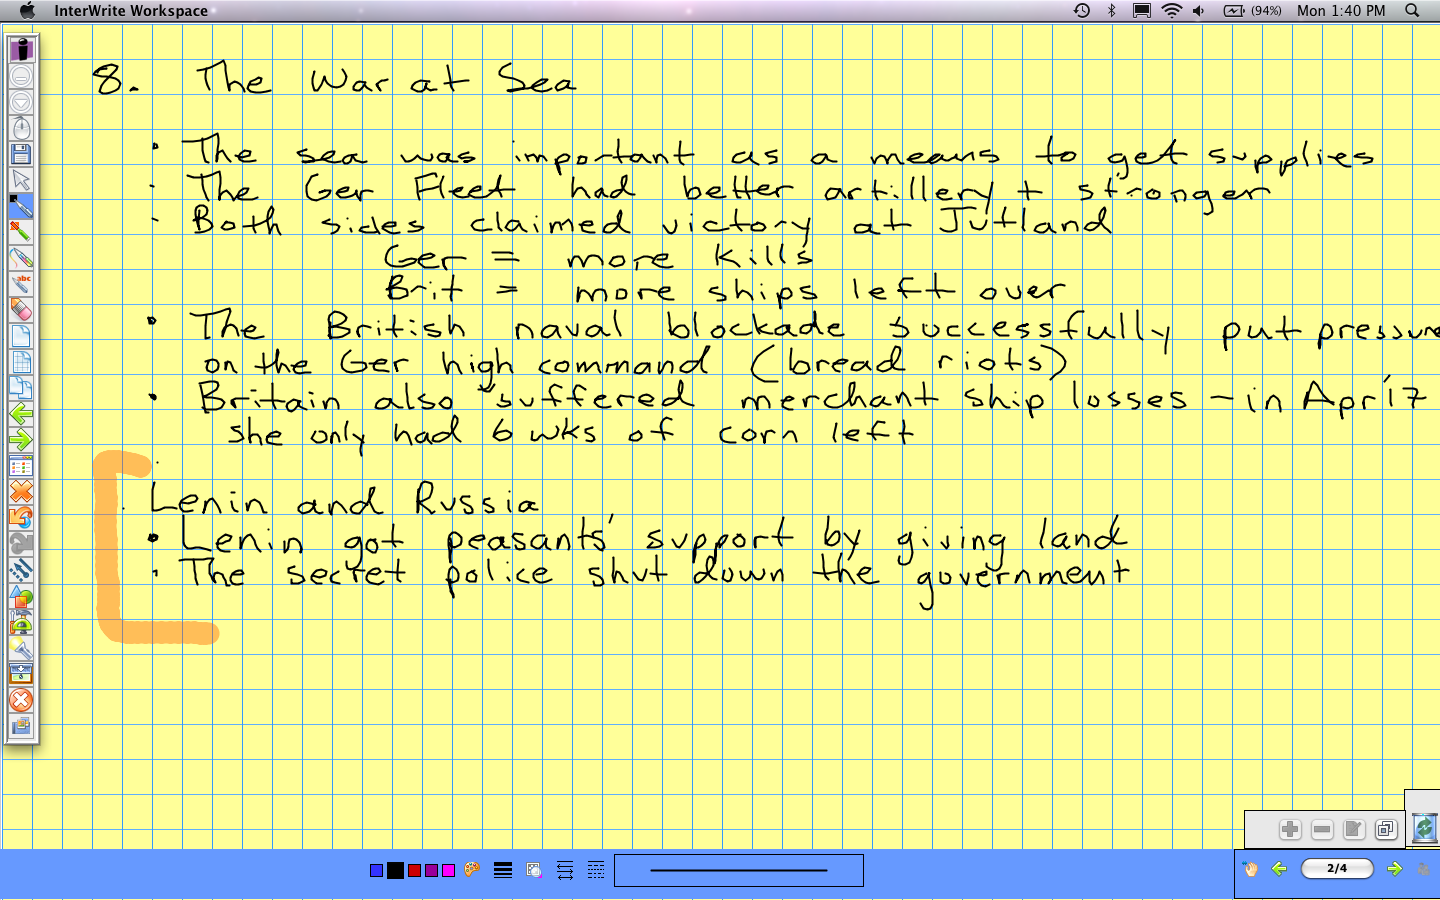 InterWrite Workspace (94%) Mon 1:40 PM
8. The War at Sea
• The sea was important as a means to get supplies
• The Ger Fleet had better artillery + stronger
• Both sides claimed victory at Jutland
Ger = more kills
Brit = more ships left over
• The British naval blockade successfully put pressure
on the Ger high command (bread riots)
• Britain also suffered merchant ship losses – in Apr '17
she only had 6 wks of corn left
Lenin and Russia
• Lenin got peasants' support by giving land
• The secret police shut down the government
abc
2/4